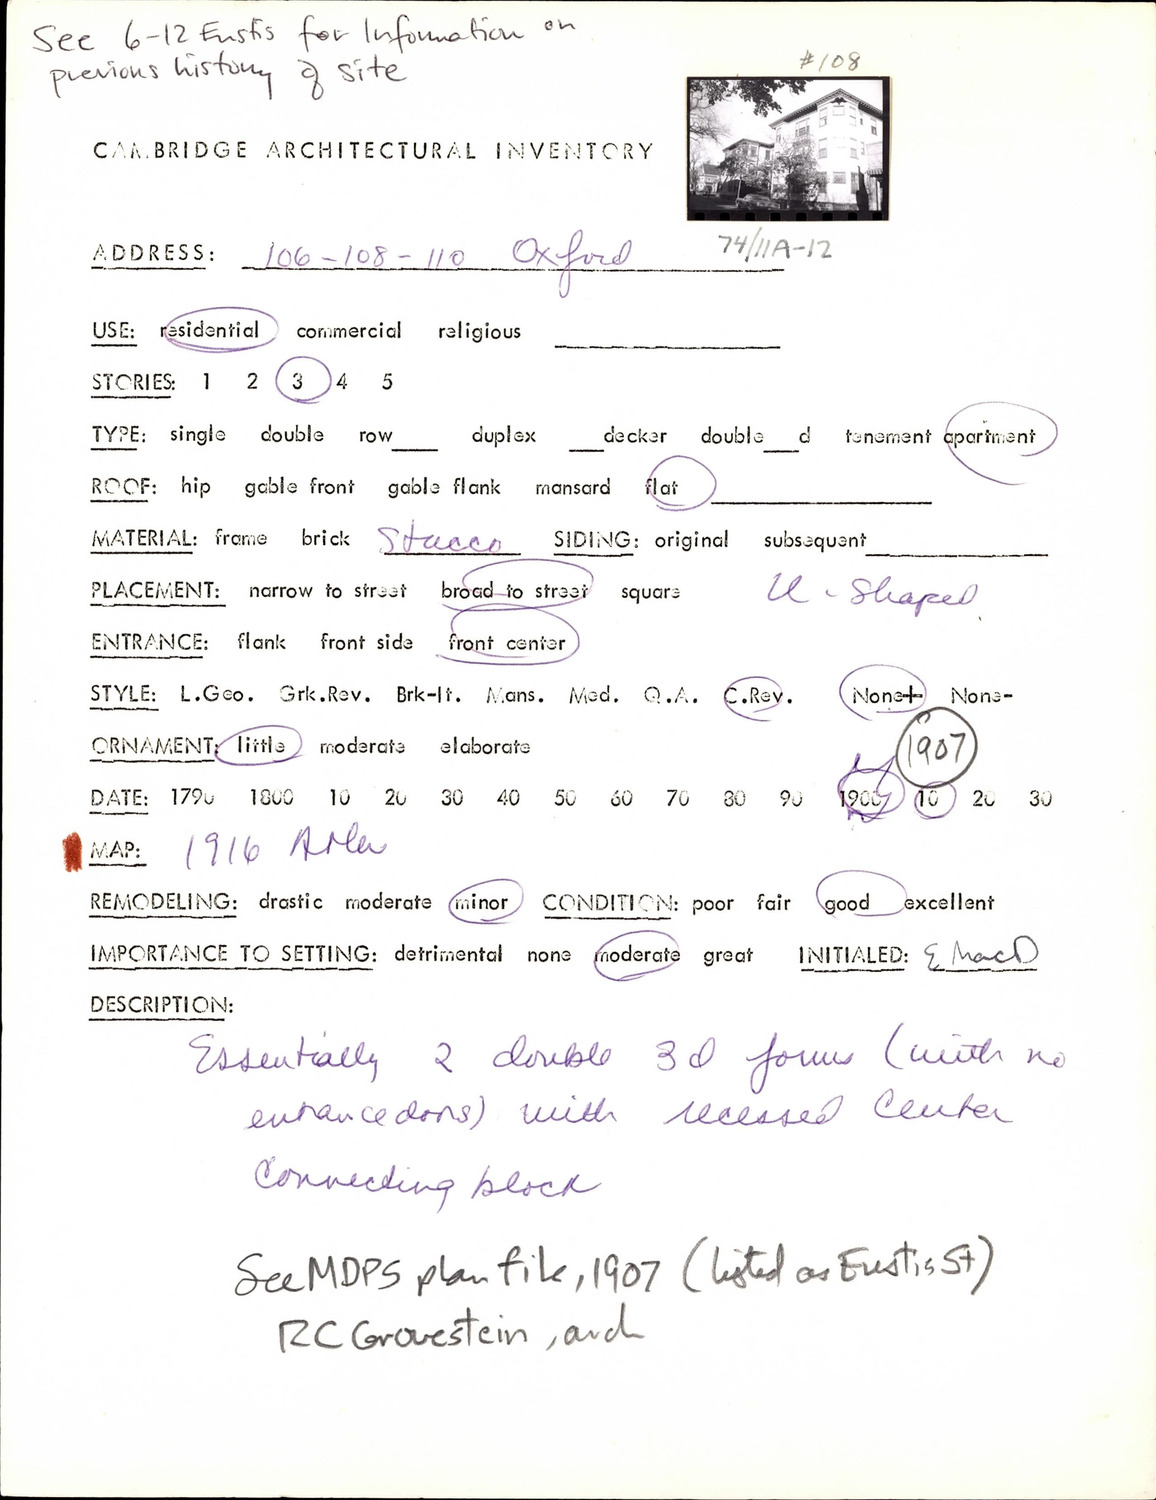 See 6-12 Eustis for Information on
previous history of site
#108
CAMBRIDGE ARCHITECTURAL INVENTORY
74/11A-12
ADDRESS: 106-108-110 Oxford
USE: residential commercial religious
STORIES: 1 2 3 4 5
TYPE: single double row____ duplex ___decker double___d tenement apartment
ROOF: hip gable front gable flank mansard flat
MATERIAL: frame brick Stucco SIDING: original subsequent
PLACEMENT: narrow to street broad to street square U-Shaped
ENTRANCE: flank front side front center
STYLE: L.Geo. Grk.Rev. Brk-It. Mans. Med. Q.A. C.Rev. None+ None-
ORNAMENT: little moderate elaborate
1907
DATE: 1790 1800 10 20 30 40 50 60 70 80 90 1900 10 20 30
MAP: 1916 Atlas
REMODELING: drastic moderate minor CONDITION: poor fair good excellent
IMPORTANCE TO SETTING: detrimental none moderate great INITIALED: E MacD
DESCRIPTION:
Essentially 2 double 3d forms (with no
entrance doors) with recessed Center
Connecting block
See MDPS plan file, 1907 (listed as Eustis St)
RC Grovestein, arch